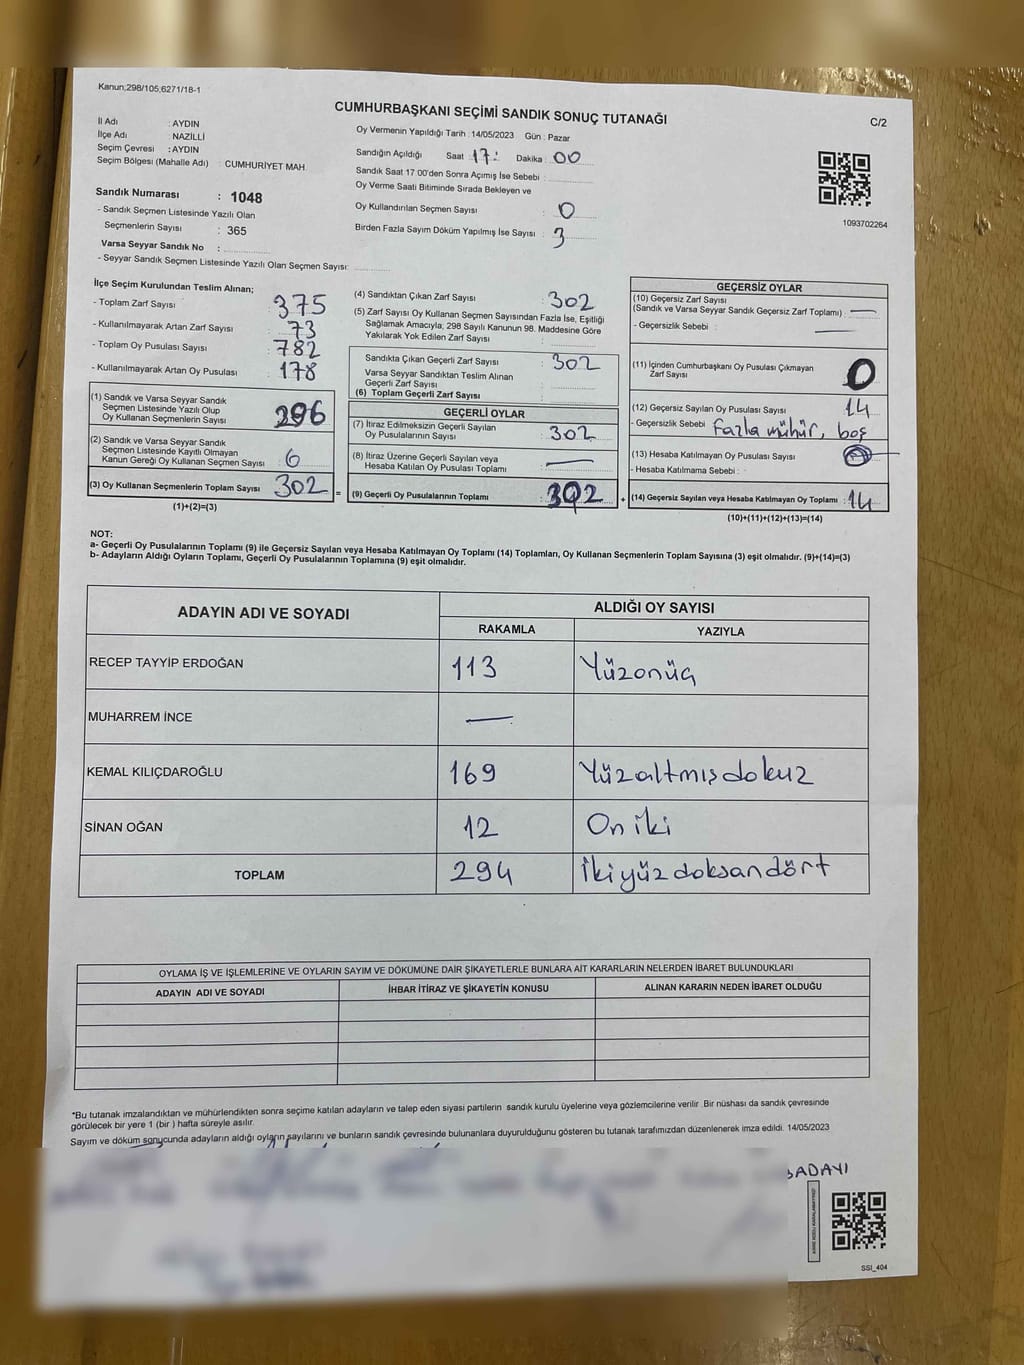 Kanun;298/105;6271/18-1
CUMHURBAŞKANI SEÇİMİ SANDIK SONUÇ TUTANAĞI
C/2
İl Adı : AYDIN
İlçe Adı : NAZİLLİ
Seçim Çevresi : AYDIN
Seçim Bölgesi (Mahalle Adı) : CUMHURİYET MAH.
Sandık Numarası : 1048
- Sandık Seçmen Listesinde Yazılı Olan
Seçmenlerin Sayısı : 365
Varsa Seyyar Sandık No :
- Seyyar Sandık Seçmen Listesinde Yazılı Olan Seçmen Sayısı:
Oy Vermenin Yapıldığı Tarih : 14/05/2023 Gün : Pazar
Sandığın Açıldığı Saat 17: Dakika : 00
Sandık Saat 17:00'den Sonra Açımış İse Sebebi :
Oy Verme Saati Bitiminde Sırada Bekleyen ve
Oy Kullandırılan Seçmen Sayısı : 0
Birden Fazla Sayım Döküm Yapılmış İse Sayısı : 3
1093702264
İlçe Seçim Kurulundan Teslim Alınan;
- Toplam Zarf Sayısı : 375
- Kullanılmayarak Artan Zarf Sayısı : 73
- Toplam Oy Pusulası Sayısı : 782
- Kullanılmayarak Artan Oy Pusulası : 178
(1) Sandık ve Varsa Seyyar Sandık
Seçmen Listesinde Yazılı Olup
Oy Kullanan Seçmenlerin Sayısı : 296
(2) Sandık ve Varsa Seyyar Sandık
Seçmen Listesinde Kayıtlı Olmayan
Kanun Gereği Oy Kullanan Seçmen Sayısı : 6
(3) Oy Kullanan Seçmenlerin Toplam Sayısı : 302
(1)+(2)=(3)
=
(4) Sandıktan Çıkan Zarf Sayısı : 302
(5) Zarf Sayısı Oy Kullanan Seçmen Sayısından Fazla İse, Eşitliği
Sağlamak Amacıyla; 298 Sayılı Kanunun 98. Maddesine Göre
Yakılarak Yok Edilen Zarf Sayısı :
Sandıkta Çıkan Geçerli Zarf Sayısı : 302
Varsa Seyyar Sandıktan Teslim Alınan
Geçerli Zarf Sayısı :
(6) Toplam Geçerli Zarf Sayısı :
GEÇERLİ OYLAR
(7) İtiraz Edilmeksizin Geçerli Sayılan
Oy Pusulalarının Sayısı : 302
(8) İtiraz Üzerine Geçerli Sayılan veya
Hesaba Katılan Oy Pusulası Toplamı : —
(9) Geçerli Oy Pusulalarının Toplamı : 302
+
GEÇERSİZ OYLAR
(10) Geçersiz Zarf Sayısı
(Sandık ve Varsa Seyyar Sandık Geçersiz Zarf Toplamı) : —
- Geçersizlik Sebebi : —
(11) İçinden Cumhurbaşkanı Oy Pusulası Çıkmayan
Zarf Sayısı : 0
(12) Geçersiz Sayılan Oy Pusulası Sayısı : 14
- Geçersizlik Sebebi : Fazla mühür, boş
(13) Hesaba Katılmayan Oy Pusulası Sayısı :
- Hesaba Katılmama Sebebi :
(14) Geçersiz Sayılan veya Hesaba Katılmayan Oy Toplamı : 14
(10)+(11)+(12)+(13)=(14)
NOT:
a- Geçerli Oy Pusulalarının Toplamı (9) ile Geçersiz Sayılan veya Hesaba Katılmayan Oy Toplamı (14) Toplamları, Oy Kullanan Seçmenlerin Toplam Sayısına (3) eşit olmalıdır. (9)+(14)=(3)
b- Adayların Aldığı Oyların Toplamı, Geçerli Oy Pusulalarının Toplamına (9) eşit olmalıdır.
ADAYIN ADI VE SOYADI ALDIĞI OY SAYISI
RAKAMLA YAZIYLA
RECEP TAYYİP ERDOĞAN 113 Yüzonüç
MUHARREM İNCE —
KEMAL KILIÇDAROĞLU 169 Yüzaltmışdokuz
SİNAN OĞAN 12 On iki
TOPLAM 294 İkiyüzdoksandört
OYLAMA İŞ VE İŞLEMLERİNE VE OYLARIN SAYIM VE DÖKÜMÜNE DAİR ŞİKAYETLERLE BUNLARA AİT KARARLARIN NELERDEN İBARET BULUNDUKLARI
ADAYIN ADI VE SOYADI İHBAR İTİRAZ VE ŞİKAYETİN KONUSU ALINAN KARARIN NEDEN İBARET OLDUĞU
*Bu tutanak imzalandıktan ve mühürlendikten sonra seçime katılan adayların ve talep eden siyasi partilerin sandık kurulu üyelerine veya gözlemcilerine verilir. Bir nüshası da sandık çevresinde
görülecek bir yere 1 (bir) hafta süreyle asılır.
Sayım ve döküm sonucunda adayların aldığı oyların sayılarını ve bunların sandık çevresinde bulunanlara duyurulduğunu gösteren bu tutanak tarafımızdan düzenlenerek imza edildi. 14/05/2023
ADAYI
SSI_404